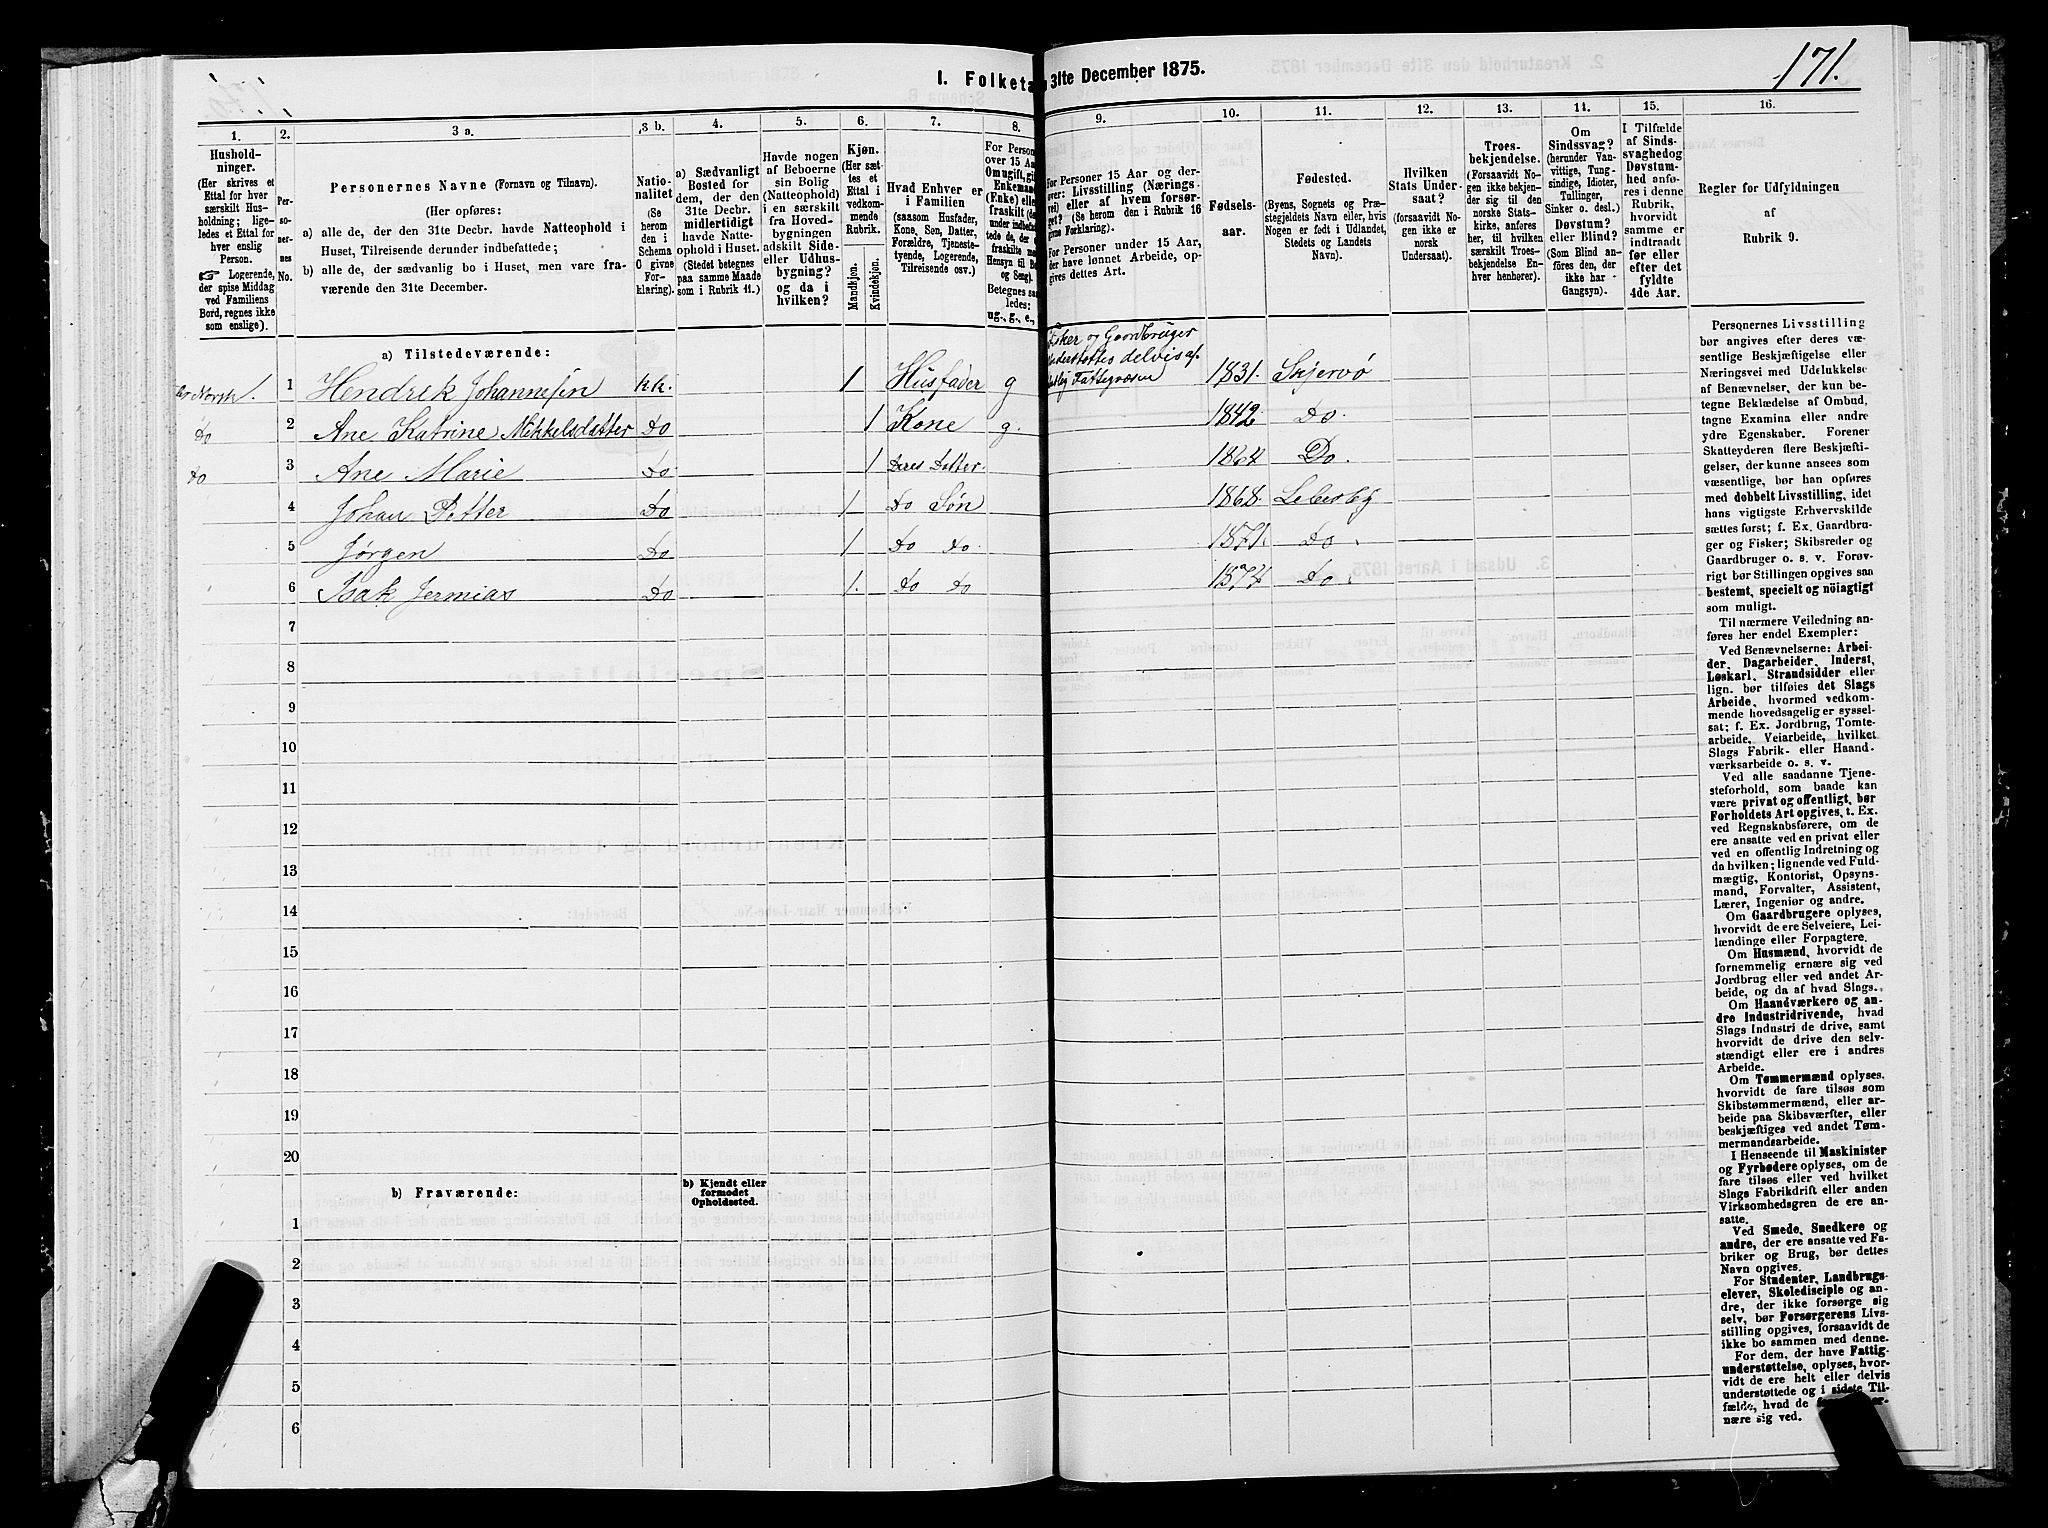 I. Folketæ
31lte December 1875.
171.
1.
2.
3 a.
3 b.
4.
5.
6.
7.
8.
9.
10.
11.
12.
13.
14.
15.
16.
Hushold-
ninger.
(Her skrives et
Ettal for hver
særskilt Hus-
holdning; lige-
ledes et Ettal for
hver enslig
Person.
☞ Logerende,
der spise Middag
ved Familiens
Bord, regnes ikke
som enslige).
Per-
so-
ner-
nes
No.
Personernes Navne (Fornavn og Tilnavn).
(Her opføres:
a) alle de, der den 31te Decbr. havde Natteophold i
Huset, Tilreisende derunder indbefattede;
b) alle de, der sædvanlig bo i Huset, men vare fra-
værende den 31te December.
Natio-
nalitet
(Se
herom
den i
Schema
C givne
For-
klaring).
a) Sædvanligt
Bosted for
dem, der den
31te Decbr.
midlertidigt
havde Natte-
ophold i Huset.
(Stedet betegnes
paa samme Maade
som i Rubrik 11.)
Havde nogen
af Beboerne
sin Bolig
(Natteophold)
i en særskilt
fra Hoved-
bygningen
adskilt Side-
eller Udhus-
bygning?
og da i
hvilken?
Kjøn.
(Her sæt-
tes et
Ettal i
vedkom-
mende
Rubrik.
Mandkjøn.
Kvindekjøn.
Hvad Enhver er
i Familien
(saasom Husfader,
Kone, Søn, Datter,
Forældre, Tjeneste-
tyende, Logerende,
Tilreisende osv.)
For Person
over 15 Aa
Om ugift, gif
Enkemand
(Enke) elle
fraskilt (de
under indbefat-
tede de, der
fraskilte me
Hensyn til Bo
og Seng).
Betegnes saa
ledes:
ug., g., e.,
For Personer 15 Aar og der-
over: Livsstilling (Nærings-
vei) eller af hvem forsør-
get? (Se herom den i Rubrik 16
givne Forklaring).
For Personer under 15 Aar,
der have lønnet Arbeide, op-
gives dettes Art.
Fødsels-
aar.
Fødested.
(Byens, Sognets og Præ-
stegjeldets Navn eller, hvis
Nogen er født i Udlandet,
Stedets og Landets
Navn).
Hvilken
Stats Under-
saat?
(forsaavidt No-
gen ikke er
norsk
Undersaat).
Troes-
bekjendelse.
(Forsaavidt No-
gen ikke bekjen-
der sig til den
norske Stats-
kirke, anføres
her, til hvilken
særskilt Troes-
bekjendelse En-
hver henhører).
Om
Sindssvag?
(herunder Van-
vittige, Tung-
sindige, Idioter,
Tullinger,
Sinker o. desl.)
Døvstum?
eller Blind?
(Som Blind an-
føres den, der
ikke har
Gangsyn).
I Tilfælde
af Sinds-
svaghed og
Døvstum-
hed anfø-
res i denne
Rubrik,
hvorvidt
samme er
indtraadt
før eller
efter det
fyldte
4de Aar.
Regler for Udfyldningen
af
Rubrik 9.
a) Tilstedeværende:
Fisker og Gaardbruger
understøttes delvis af
Fattigvæsen
Norsk 1.
1 Hendrik Johannesen kk. 1 Husfader g 1831. Skjervø
Do 2 Ane Katrine Mikkelsdatter Do 1 Kone g. 1842. Do.
Do 3 Ane Marie Do 1 Deres Datter. 1864 Do.
4 Johan Petter Do 1 Do Søn 1868. Lebesby
5 Jørgen Do 1 Do Do 1871. Do.
6 Isak Jermias Do 1. Do Do 1874 Do.
7
8
9
10
11
12
13
14
15
16
17
18
19
20
b) Fraværende:
b) Kjendt eller
formodet
Opholdssted.
1
2
3
4
5
6
Personernes Livsstilling
bør angives efter deres væ-
sentlige Beskjæftigelse eller
Næringsvei med Udelukkelse
af Benævnelser, der kun be-
tegne Beklædelse af Ombud,
tagne Examina eller andre
ydre Egenskaber. Forener
Skatteyderen flere Beskjæfti-
gelser, der kunne ansees som
væsentlige, bør han opføres
med dobbelt Livsstilling, idet
hans vigtigste Erhvervskilde
sættes først; f. Ex. Gaardbru-
ger og Fisker; Skibsreder og
Gaardbruger o. s. v. Forøv-
rigt bør Stillingen opgives saa
bestemt, specielt og nöiagtigt
som muligt.
Til nærmere Veiledning an-
føres her endel Exempler:
Ved Benævnelserne: Arbei-
der, Dagarbeider, Inderst,
Løskarl, Strandsidder eller
lign. bør tilføies det Slags
Arbeide, hvormed vedkom-
mende hovedsagelig er syssel-
sat; f. Ex. Jordbrug, Tomte-
arbeide, Veiarbeide, hvilket
Slags Fabrik- eller Haand-
værksarbeide o. s. v.
Ved alle saadanne Tjene-
steforhold, som baade kan
være privat og offentligt, bør
Forholdets Art opgives, t. Ex.
ved Regnskabsførere, om de
ere ansatte ved en privat eller
ved en offentlig Indretning og
da hvilken; lignende ved Fuld-
mægtig, Kontorist, Opsyns-
mand, Forvalter, Assistent,
Lærer, Ingeniør og andre.
Om Gaardbrugere oplyses,
hvorvidt de ere Selveiere, Lei-
lændinge eller Forpagtere.
Om Husmænd, hvorvidt de
fornemmelig ernære sig ved
Jordbrug eller ved andet Ar-
beide, og da af hvad Slags.
Om Haandværkere og an-
dre Industridrivende, hvad
Slags Industri de drive, samt
hvorvidt de drive den selv-
stændigt eller ere i andres
Arbeide.
Om Tømmermænd oplyses,
hvorvidt de fare tilsøs som
Skibstømmermænd, eller ar-
beide paa Skibsværfter, eller
beskjæftiges ved andet Tøm-
mermandsarbeide.
I Henseende til Maskinister
og Fyrbødere oplyses, om de
fare tilsøs eller ved hvilket
Slags Fabrikdrift eller anden
Virksomhedsgren de ere an-
satte.
Ved Smede, Snedkere og
andre, der ere ansatte ved Fa-
briker og Brug, bør dettes
Navn opgives.
For Studenter, Landbrugs-
elever, Skoledisciple og an-
dre, der ikke forsørge sig
selv, bør Forsørgerens Livs-
stilling opgives, forsaavidt de
ikke bo sammen med denne.
For dem, der have Fattig-
understøttelse, oplyses, hvor-
vidt de ere helt eller delvis
understøttede og i sidste Til-
fælde, hvad de
nære sig ved.